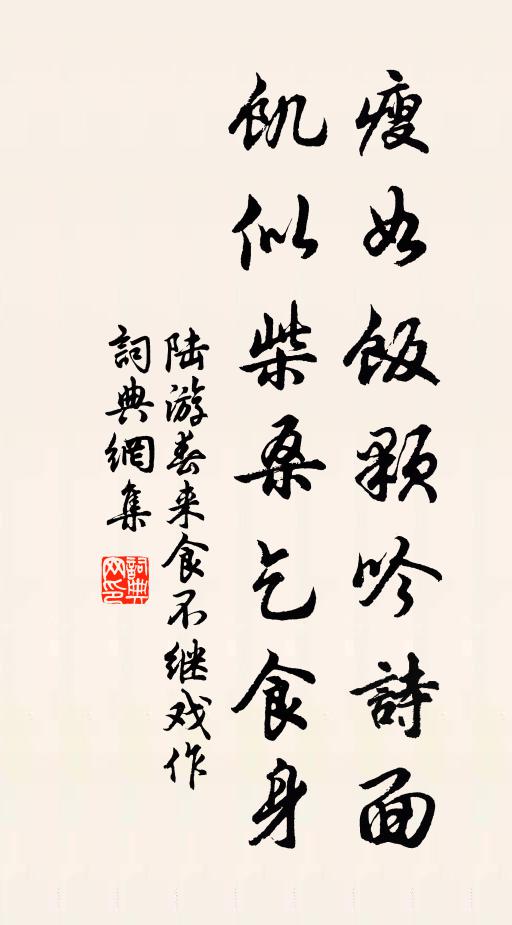 瘦如飯顆吟詩面
飢似柴桑乞食身
陆游春来食不继戏作
詞典網集
詞典网印